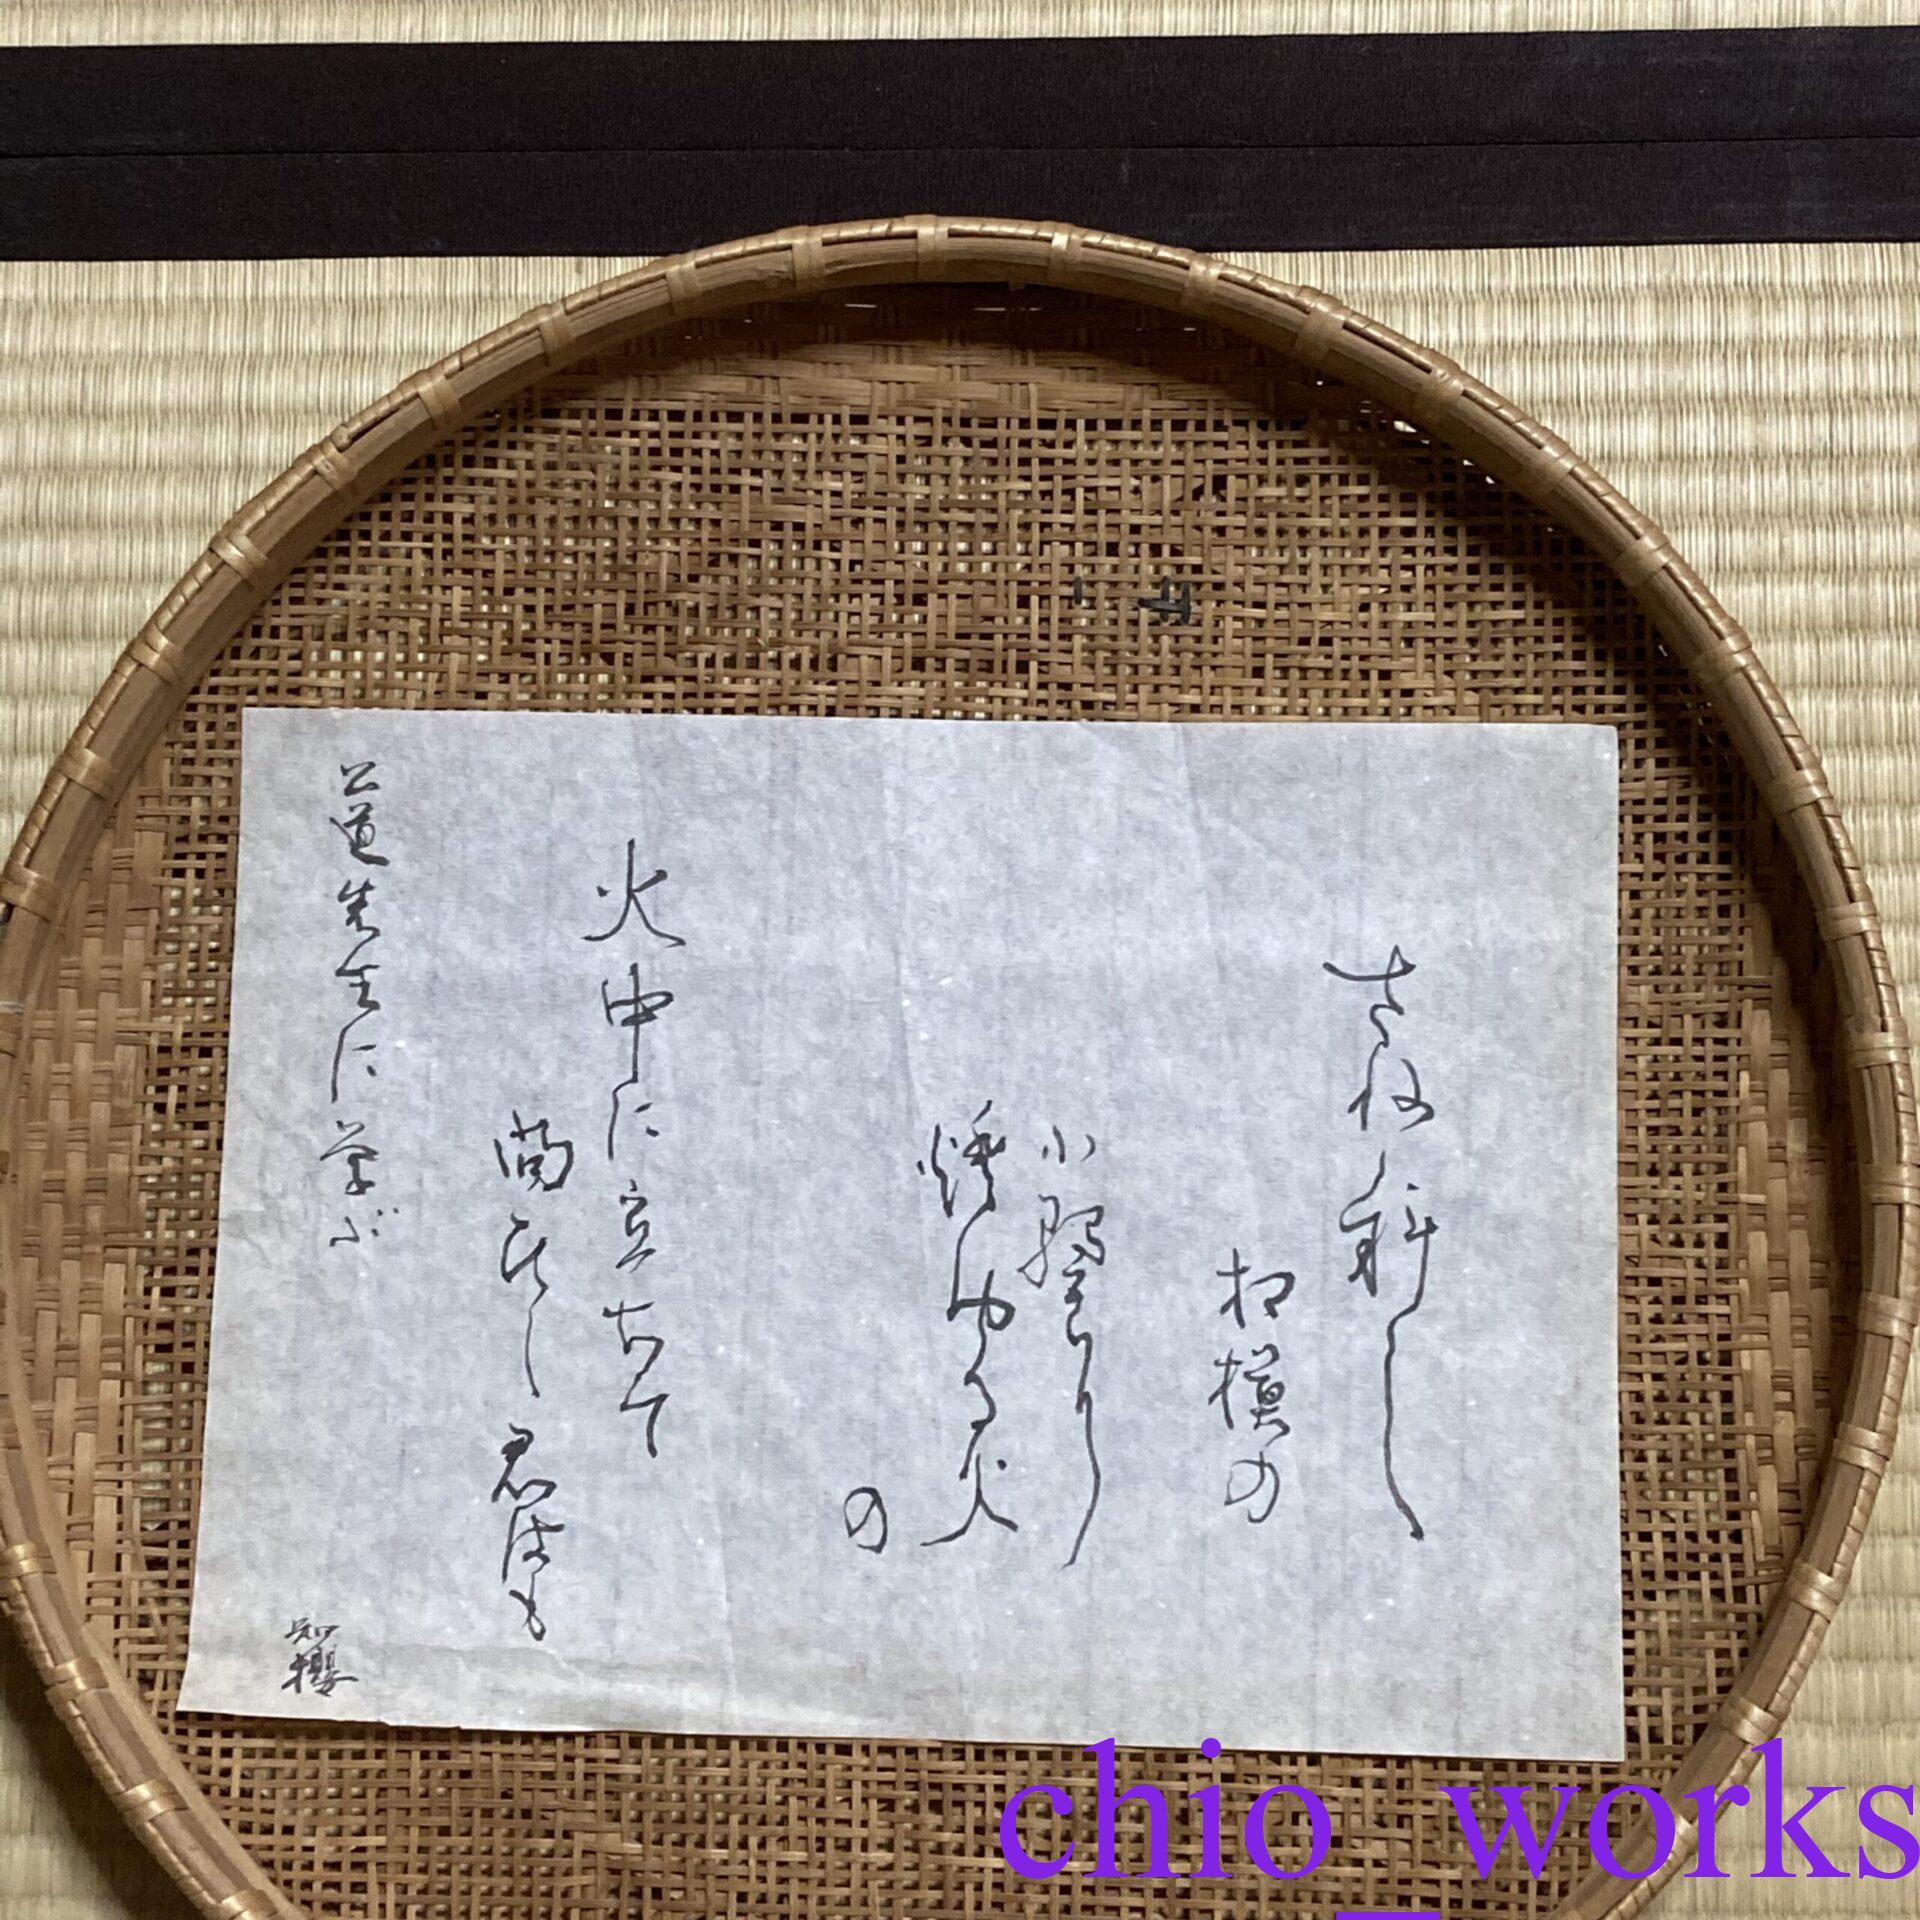 さねさし
相模の
小野に
燃ゆる火
の
火中に立ちて
問ひし君はも
公道先生に学ぶ
知櫻
chio_works